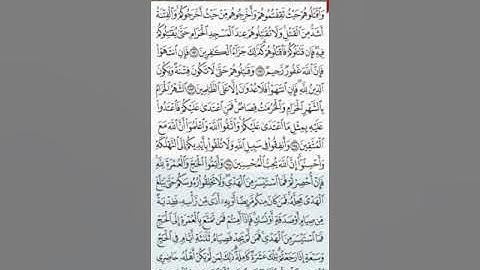 وَاقْتُلُوهُمْ حَيْثُ ثَقِفْتُمُوهُمْ وَأَخْرِجُوهُم مِّنْ حَيْثُ أَخْرَجُوكُمْ وَالْفِتْنَةُ
أَشَدُّ مِنَ الْقَتْلِ وَلَا تُقَاتِلُوهُمْ عِندَ الْمَسْجِدِ الْحَرَامِ حَتَّىٰ يُقَاتِلُوكُمْ
فِيهِ فَإِن قَاتَلُوكُمْ فَاقْتُلُوهُمْ كَذَٰلِكَ جَزَاءُ الْكَافِرِينَ ١٩١ فَإِنِ انتَهَوْا
فَإِنَّ اللَّهَ غَفُورٌ رَّحِيمٌ ١٩٢ وَقَاتِلُوهُمْ حَتَّىٰ لَا تَكُونَ فِتْنَةٌ وَيَكُونَ
الدِّينُ لِلَّهِ فَإِنِ انتَهَوْا فَلَا عُدْوَانَ إِلَّا عَلَى الظَّالِمِينَ ١٩٣ الشَّهْرُ الْحَرَامُ
بِالشَّهْرِ الْحَرَامِ وَالْحُرُمَاتُ قِصَاصٌ فَمَنِ اعْتَدَىٰ عَلَيْكُمْ فَاعْتَدُوا
عَلَيْهِ بِمِثْلِ مَا اعْتَدَىٰ عَلَيْكُمْ وَاتَّقُوا اللَّهَ وَاعْلَمُوا أَنَّ اللَّهَ مَعَ
الْمُتَّقِينَ ١٩٤ وَأَنفِقُوا فِي سَبِيلِ اللَّهِ وَلَا تُلْقُوا بِأَيْدِيكُمْ إِلَى التَّهْلُكَةِ
وَأَحْسِنُوا إِنَّ اللَّهَ يُحِبُّ الْمُحْسِنِينَ ١٩٥ وَأَتِمُّوا الْحَجَّ وَالْعُمْرَةَ لِلَّهِ
فَإِنْ أُحْصِرْتُمْ فَمَا اسْتَيْسَرَ مِنَ الْهَدْيِ وَلَا تَحْلِقُوا رُءُوسَكُمْ حَتَّىٰ يَبْلُغَ
الْهَدْيُ مَحِلَّهُ فَمَن كَانَ مِنكُم مَّرِيضًا أَوْ بِهِ أَذًى مِّن رَّأْسِهِ فَفِدْيَةٌ
مِّن صِيَامٍ أَوْ صَدَقَةٍ أَوْ نُسُكٍ فَإِذَا أَمِنتُمْ فَمَن تَمَتَّعَ بِالْعُمْرَةِ إِلَى الْحَجِّ
فَمَا اسْتَيْسَرَ مِنَ الْهَدْيِ فَمَن لَّمْ يَجِدْ فَصِيَامُ ثَلَاثَةِ أَيَّامٍ فِي الْحَجِّ
وَسَبْعَةٍ إِذَا رَجَعْتُمْ تِلْكَ عَشَرَةٌ كَامِلَةٌ ذَٰلِكَ لِمَن لَّمْ يَكُنْ أَهْلُهُ حَاضِرِي